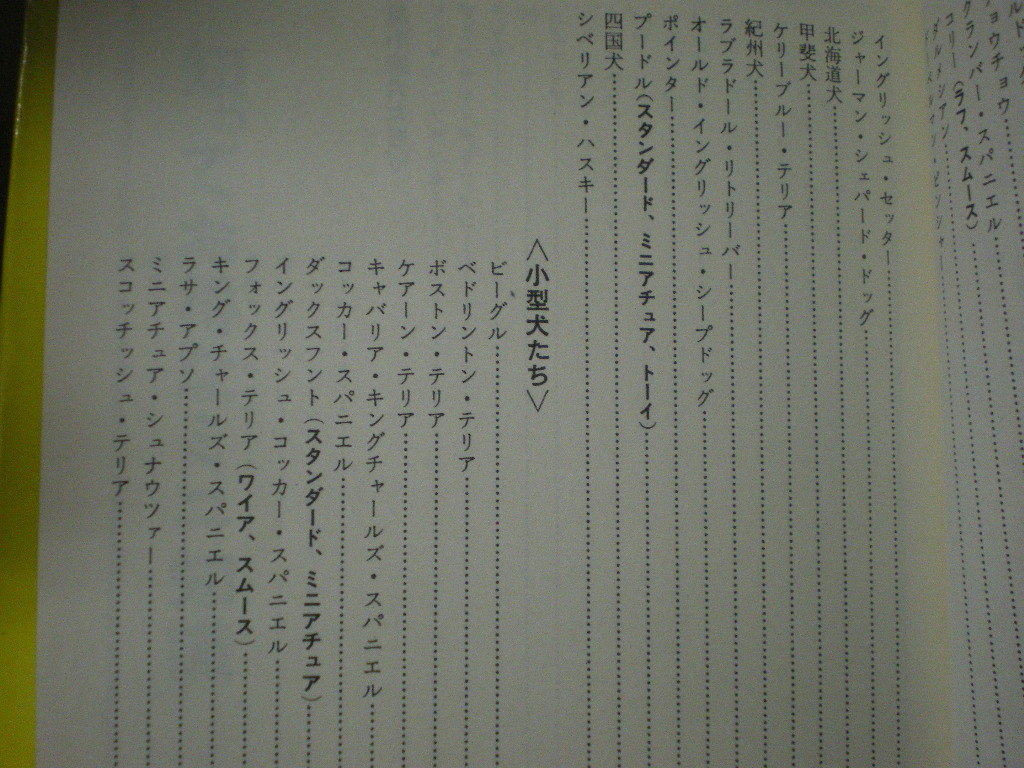 チョウチョウ
クランバー・スパニエル
コリー（ラフ、スムース）
ダルメシアン
イングリッシュ・セッター
ジャーマン・シェパード・ドッグ
北海道犬
甲斐犬
ケリーブルー・テリア
紀州犬
ラブラドール・リトリーバー
オールド・イングリッシュ・シープドッグ
ポインター
プードル（スタンダード、ミニアチュア、トーイ）
四国犬
シベリアン・ハスキー
＜小型犬たち＞
ビーグル
ベドリントン・テリア
ボストン・テリア
ケアーン・テリア
キャバリア・キングチャールズ・スパニエル
コッカー・スパニエル
ダックスフント（スタンダード、ミニアチュア）
イングリッシュ・コッカー・スパニエル
フォックス・テリア（ワイア、スムース）
キング・チャールズ・スパニエル
ラサ・アプソ
ミニアチュア・シュナウツァー
スコッチッシュ・テリア